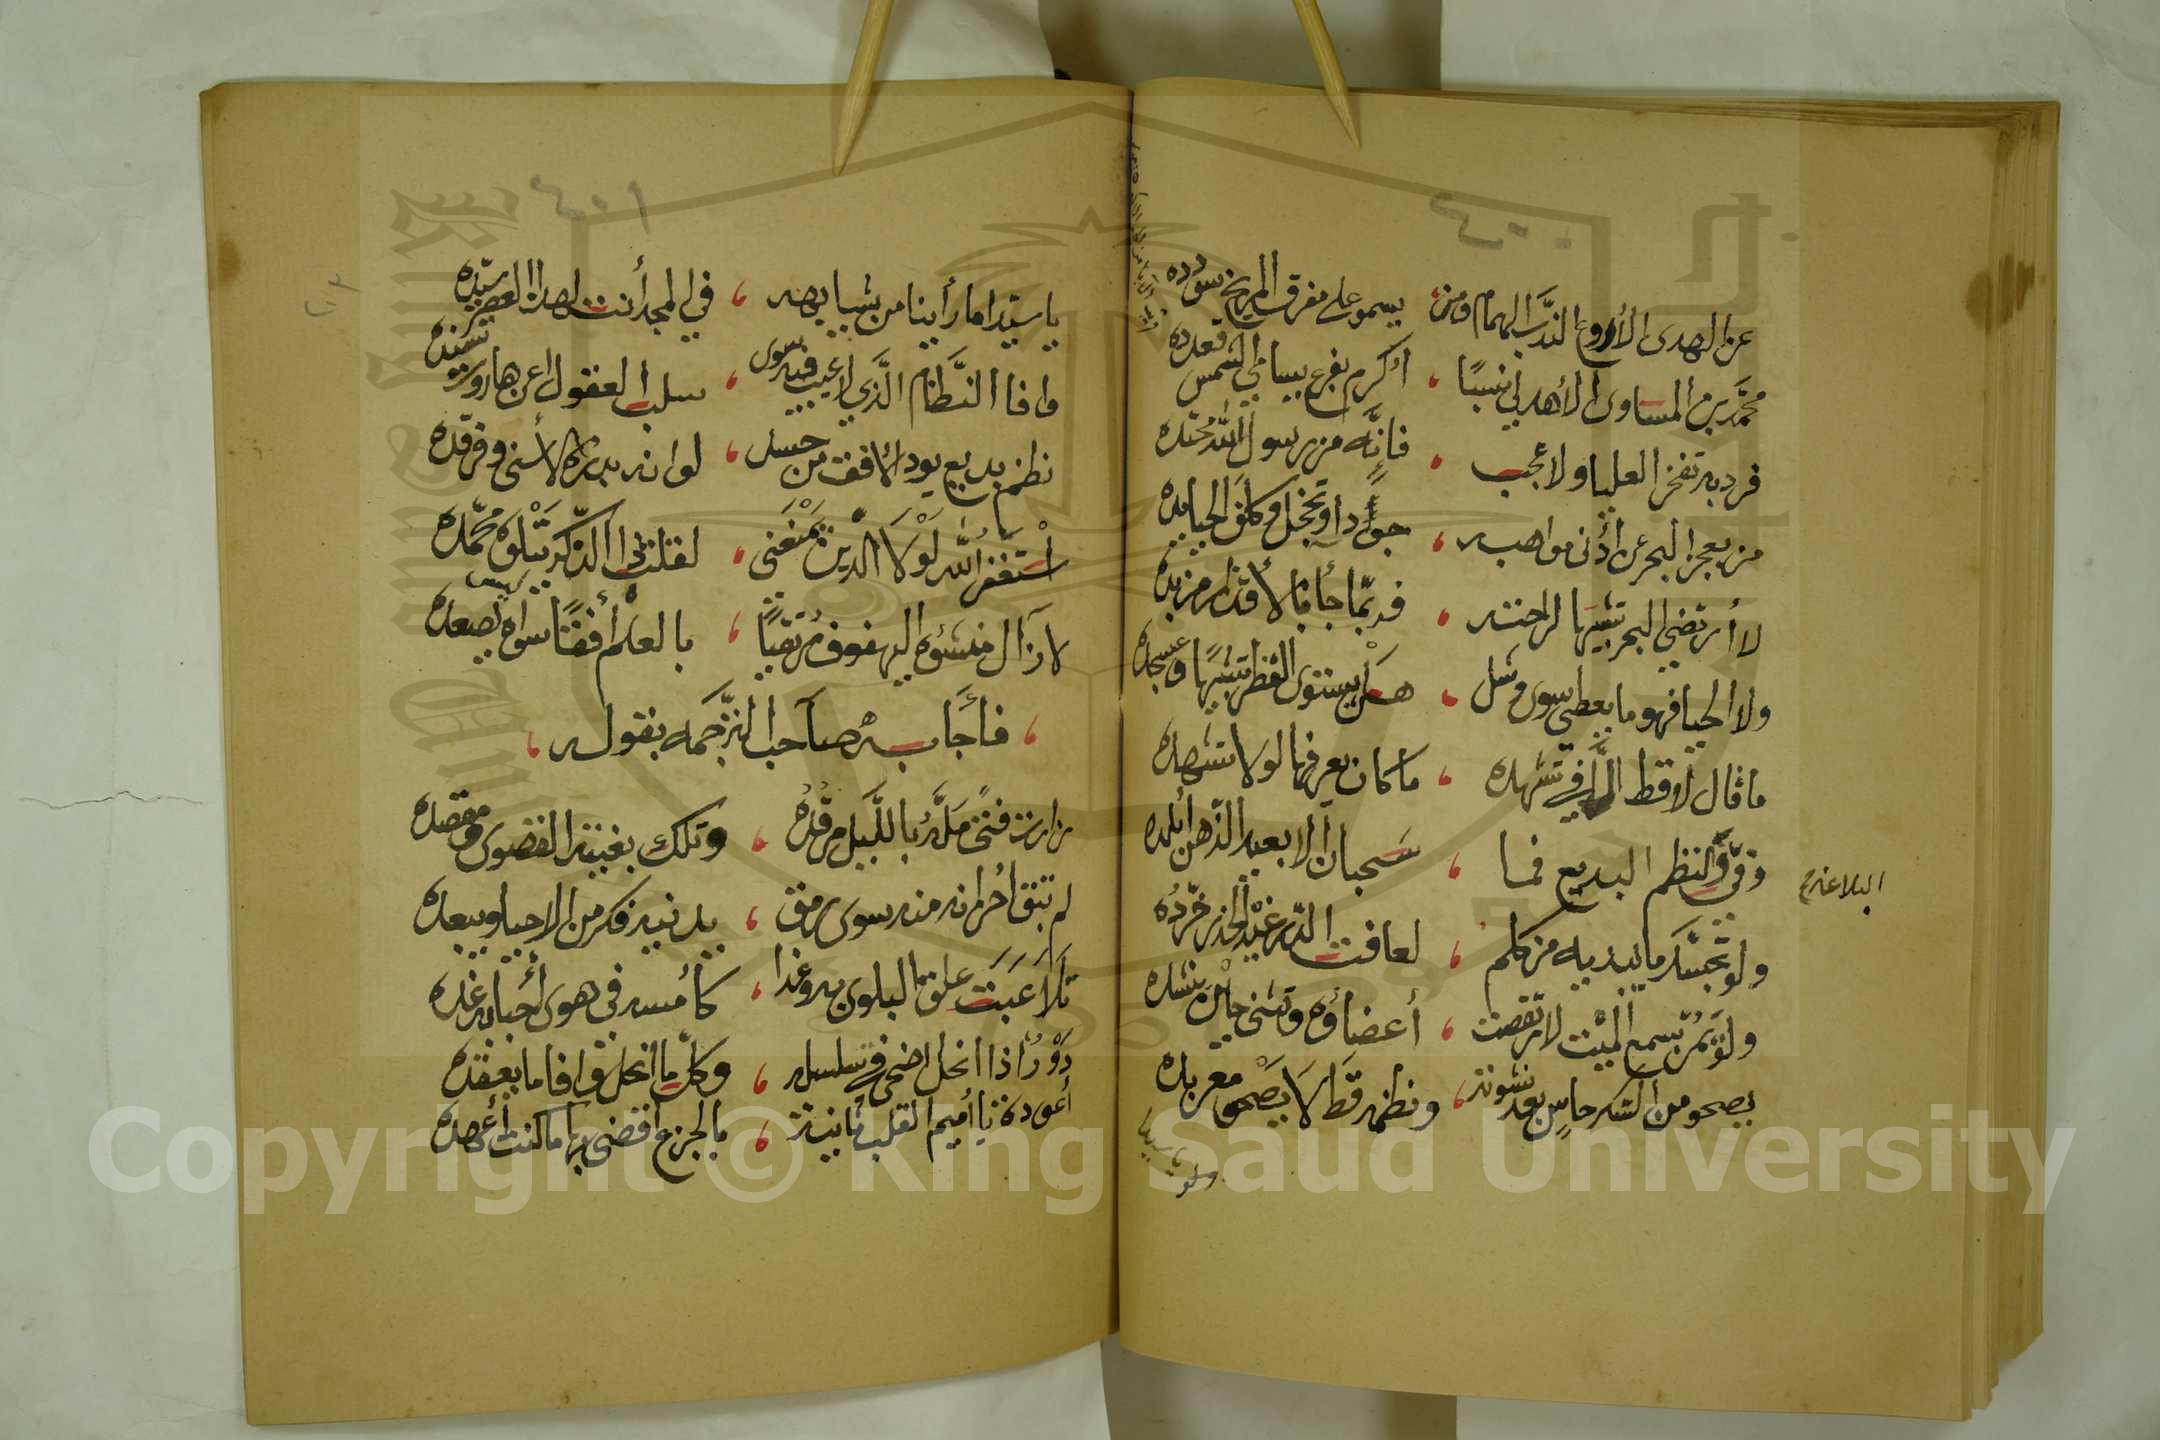 ٤٠٠
عن الهدى الأروع الندب الهمام ومن ، يسمو على مفرق المريخ سودده
محمد بن المساوى الأهدلي نسبًا ، اكرم بفرع بساطي الشمس قعدده
فرد به تفخر العليا ولا عجب ، فإنّه من رسول الله محتده
من يعجز البحر عن أدنى مواهبه ، جوداً وتخجل وكاف الحيا يده
لا أرتضي البحر تشبيها لراحته ، فربّما جأنا لأقذار مزبده
ولا الحيا فهو ما يعطي سوى وشل ، هل يستوى القطر تشبيها وعسجده
ما قال لا قط إلّا في تشهده ، ما كان يعرفها لولا تشهده
وفي النظم البديع فما ، سحبان إلا بعيد الذهن أبلده
البلاغة
ولو تجسّد ما يبديه من كلم ، لعافت الدّر غيد الحي خرّده
ولو يمرّ بسمع الميت لارتقصت ، أعضاؤه وتثنى حين ينشده
يصحو من السكر حاس بعد نشوته ، ونظمه قط لا يصحو معربده
٤٠١
يا سيّدا ما رأينا من يشابهه ، في المجد أنت لهذا العصر سيّده
وافا النّظام الّذي لا عيب فيه سوى ، سلب العقول عن هاروت تسنده
نظم بديع يود الأفق من حسد ، لو انه بدره الأسنى وفرقده
أستغفر الله لولا الدّين يمنعني ، لقلت الذّكر يتلوه محمّده
لا زال منشؤه اليهفوف مرتقيًا ، بالعلم أفقًا سواه ليس يصعده
، فأجابه صاحب الترجمة بقوله ،
زارت فتى ملّه بالليل مرقده ، وتلك بغيته القصوى ومقصده
لم تبق احزانه منه سوى رمق ، يدنيه فكر من الاحيا ويبعده
تلاعبت علق البلوى به وغدا ، كأمسه في هوى أحبابه غده
دورًا اذا انحل اضحى في تسلسله ، وكلّما انحل وافا ما يعقده
أعودة يا أميم القلب ثانية ، بالجزع اقضى بها ما كنت أعهده